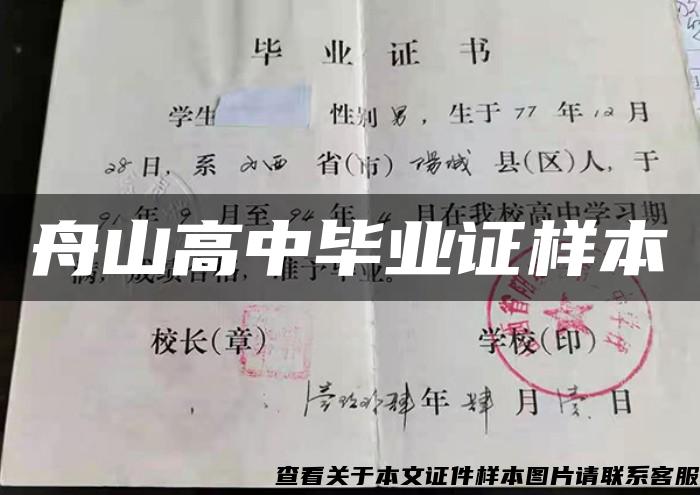 毕业证书
学生 性别男，生于77年12月
28日，系 山西 省(市) 阳城 县(区)人，于
91年9月至94年4月在我校高中学习期
舟山高中毕业证样本
满，成绩合格，准予毕业。
校长(章) 学校(印)
年 肆 月 壹 日
查看关于本文证件样本图片请联系客服